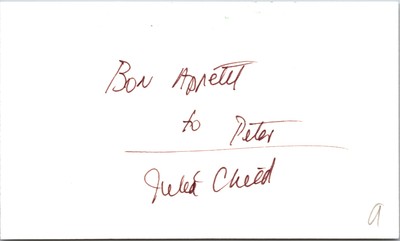 Bon Appétit
to Peter
Julia Child
a